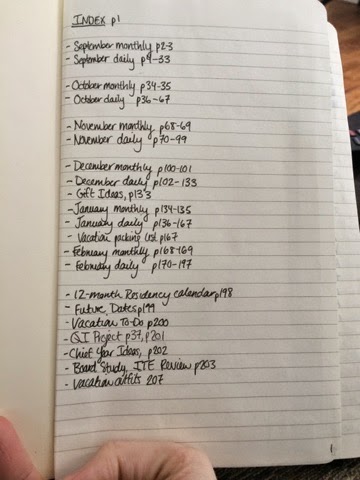 INDEX p1
- September monthly p2-3
- September daily p4-33
- October monthly p34-35
- October daily p36-67
- November monthly p68-69
- November daily p70-99
- December monthly p100-101
- December daily p102-133
- Gift Ideas, p133
- January monthly p134-135
- January daily p136-167
- Vacation packing list p167
- February monthly p168-169
- February daily p170-197
- 12-month Residency calendar p198
- Future Dates p199
- Vacation To-Do p200
- QI Project p37, p201
- Chief Year Ideas, p202
- Board Study, ITE Review p203
- Vacation outfits 207